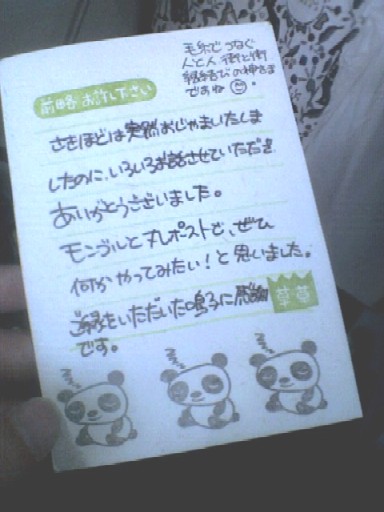 毛糸でつなぐ
人と人、街と街
縁結びの神さま
ですね
前略 お許し下さい
さきほどは突然おじゃまいたしま
したのに、いろいろお話させていただき
ありがとうございました。
モンゴルと丸ポストで、ぜひ
何かやってみたい!と思いました。
ご縁をいただいた鳴子に感謝
です。
草草